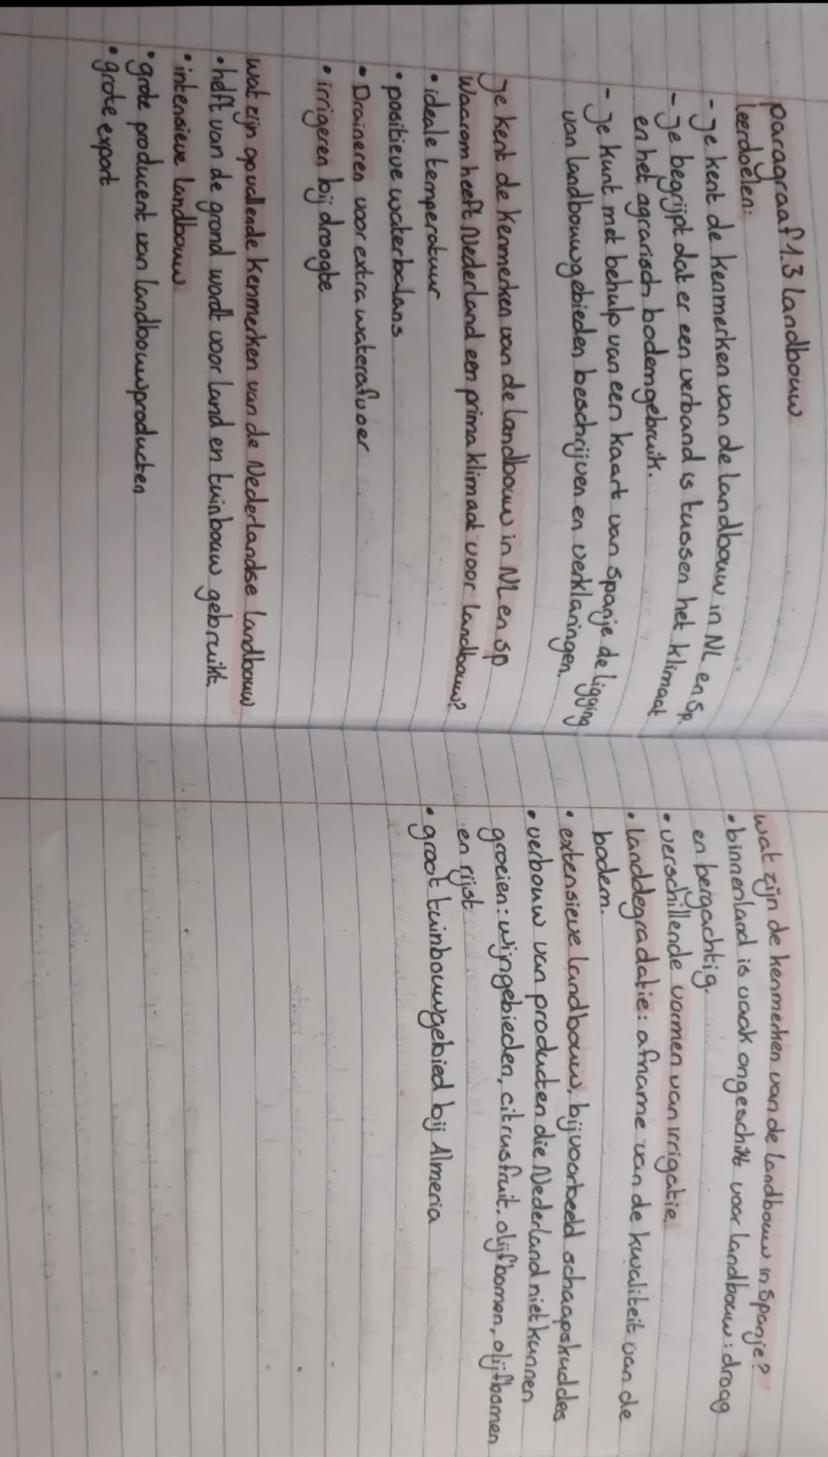 paragraaf 1.3 landbouw
leerdoelen:
- Je kent de kenmerken van de landbouw in NL en Sp.
- Je begrijpt dat er een verband is tussen het klimaat
en het agrarisch bodemgebruik.
- Je kunt met behulp van een kaart van spanje de ligging
van landbouwgebieden beschrijven en verklaringen.
Je kent de kenmerken van de landbouw in NL en sp
Waarom heeft Nederland een prima klimaat voor landbouw?
• ideale temperatuur
• positieve waterbalans
• Draineren voor extra waterafvoer
• irrigeren bij droogte
wat zijn opvallende kenmerken van de Nederlandse landbouw
• helft van de grond wordt voor land en tuinbouw gebruikt.
• intensieve landbouw
• grote producent van landbouwproducten
• grote export
wat zijn de kenmerken van de landbouw in spanje?
• binnenland is vaak ongeschikt voor landbouw: droog
en bergachtig.
• verschillende vormen van irrigatie.
• landdegradatie: afname van de kwaliteit van de
bodem.
• extensieve landbouw, bijvoorbeeld schaapskuddes
• verbouw van producten die Nederland niet kunnen
groeien: wijngebieden, citrusfruit, olijfbomen, olijfbomen
en rijst
• groot tuinbouwgebied bij Almeria